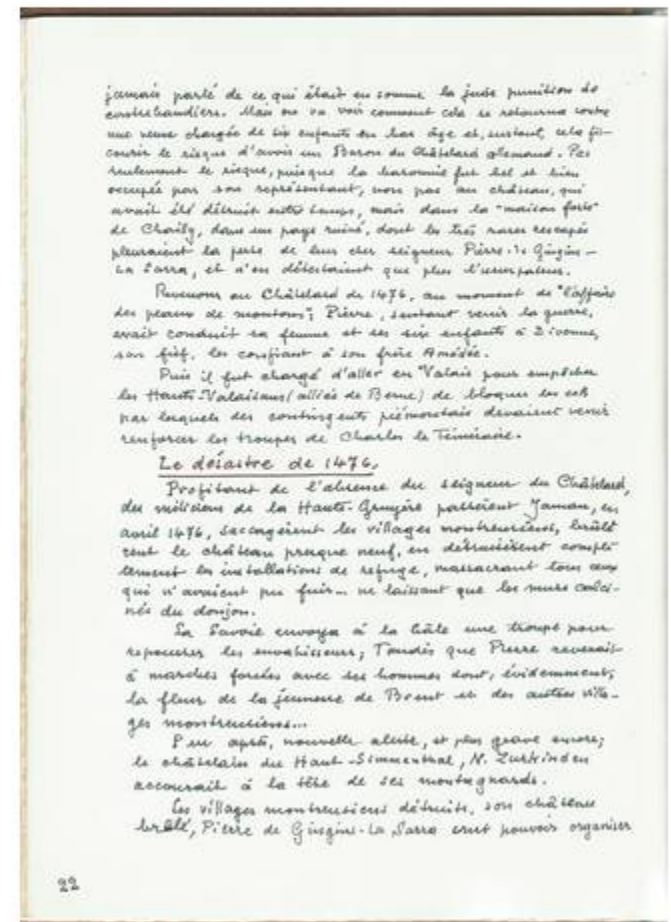 jamais parlé de ce qui était en somme la juste punition de
contrebandiers. Mais on va voir comment cela se retourna contre
une veuve chargée de six enfants en bas âge et, surtout, cela fit
courir le risque d'avoir un Baron du Châtelard allemand. Pas
seulement le risque, puisque la baronnie fut bel et bien
occupée par son représentant, non pas au château, qui
avait été détruit entre temps, mais dans la "maison forte"
de Chailly, dans un pays ruiné, dont les très rares rescapés
pleuraient la perte de leur cher seigneur Pierre de Gingins-
La Sarra, et n'en détestaient que plus l'usurpateur.
Revenons au Châtelard de 1476, au moment de "l'affaire
des peaux de moutons"; Pierre, sentant venir la guerre,
avait conduit sa femme et ses six enfants à Divonne,
son fief, les confiant à son frère Amédée.
Puis il fut chargé d'aller en Valais pour empêcher
les Hauts-Valaisans (alliés de Berne) de bloquer les cols
par lesquels des contingents piémontais devaient venir
renforcer les troupes de Charles le Téméraire.
Le désastre de 1476.
Profitant de l'absence du seigneur du Châtelard,
des miliciens de la Haute-Gruyère passèrent Jaman, en
avril 1476, saccagèrent les villages montreusiens, brûlè
rent le château presque neuf, en détruisirent complè
tement les installations de refuge, massacrant tous ceux
qui n'avaient pu fuir... ne laissant que les murs calci-
nés du donjon.
La Savoie envoya à la hâte une troupe pour
repousser les envahisseurs; Tandis que Pierre revenait
à marches forcées avec ses hommes dont, évidemment,
la fleur de la jeunesse de Brent et des autres villa-
ges montreusiens...
Peu après, nouvelle alerte, et plus grave encore;
le châtelain du Haut-Simmenthal, N. Zurkinden
accourait à la tête de ses montagnards.
Les villages montreusiens détruits, son château
brûlé, Pierre de Gingins-La Sarra crut pouvoir organiser
22